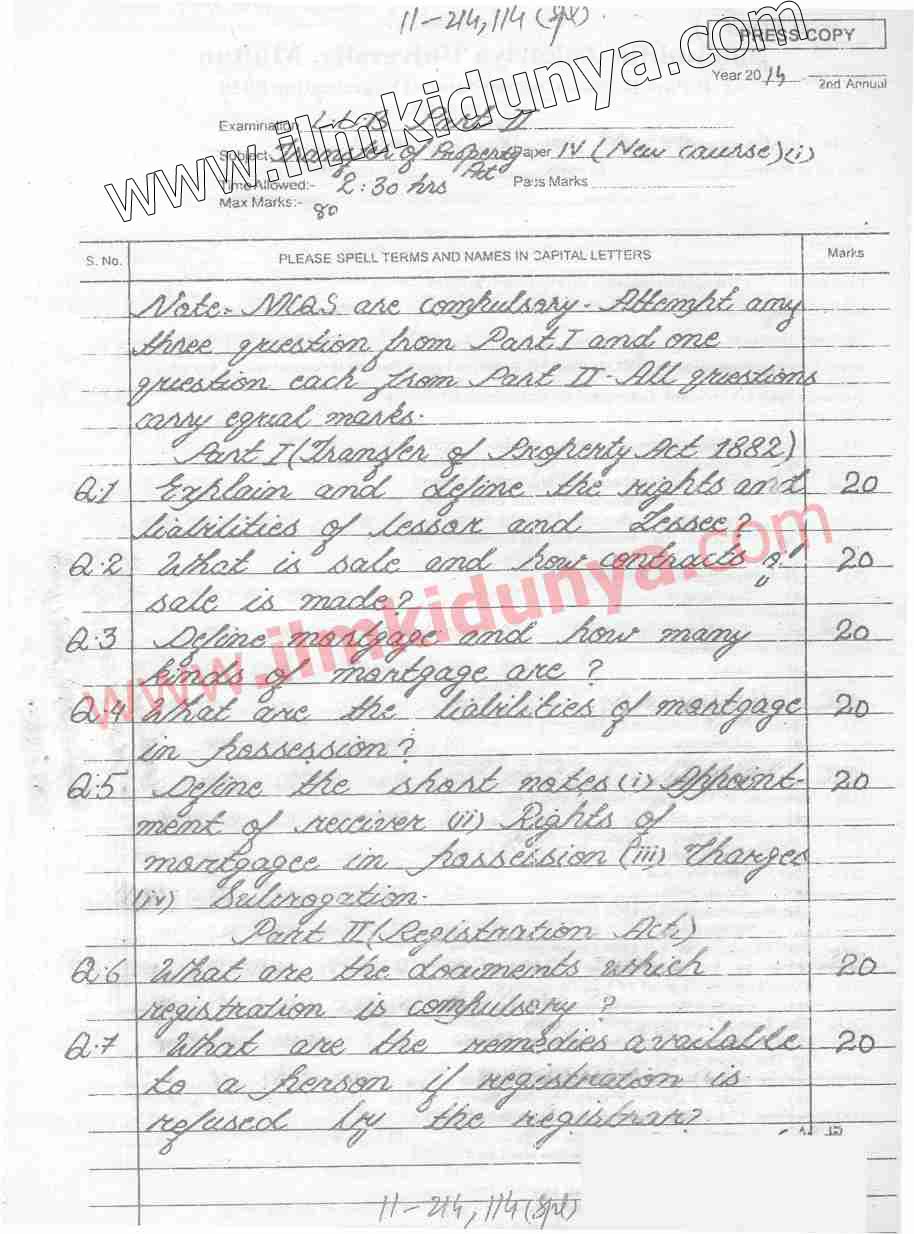 11-214,114 (Spl).
PRESS COPY
Year 2014
2nd Annual
Examination L.L.B Part II
Subject Transfer of Property Act Paper IV (New Course)(i)
Time Allowed:- 2:30 hrs Pass Marks
Max Marks:- 80
www.ilmkidunya.com
S. No. PLEASE SPELL TERMS AND NAMES IN CAPITAL LETTERS Marks
Note:- MCQS are compulsory. Attempt any
three question from Part I and one
question each from Part II. All questions
carry equal marks.
Part I (Transfer of Property Act 1882)
Q.1 Explain and define the rights and 20
liabilities of lessor and Lessee?
Q.2 What is sale and how contracts of 20
sale is made?
Q.3 Define mortgage and how many 20
kinds of mortgage are?
www.ilmkidunya.com
Q.4 What are the liabilities of mortgage 20
in possession?
Q.5 Define the short notes (i) Appoint- 20
ment of receiver (ii) Rights of
mortgagee in possession (iii) Charges
(iv) Subrogation.
Part II (Registration Act)
Q.6 What are the documents which 20
registration is compulsory?
Q.7 What are the remedies available 20
to a person if registration is
refused by the registrar?
11-214,114 (Spl)